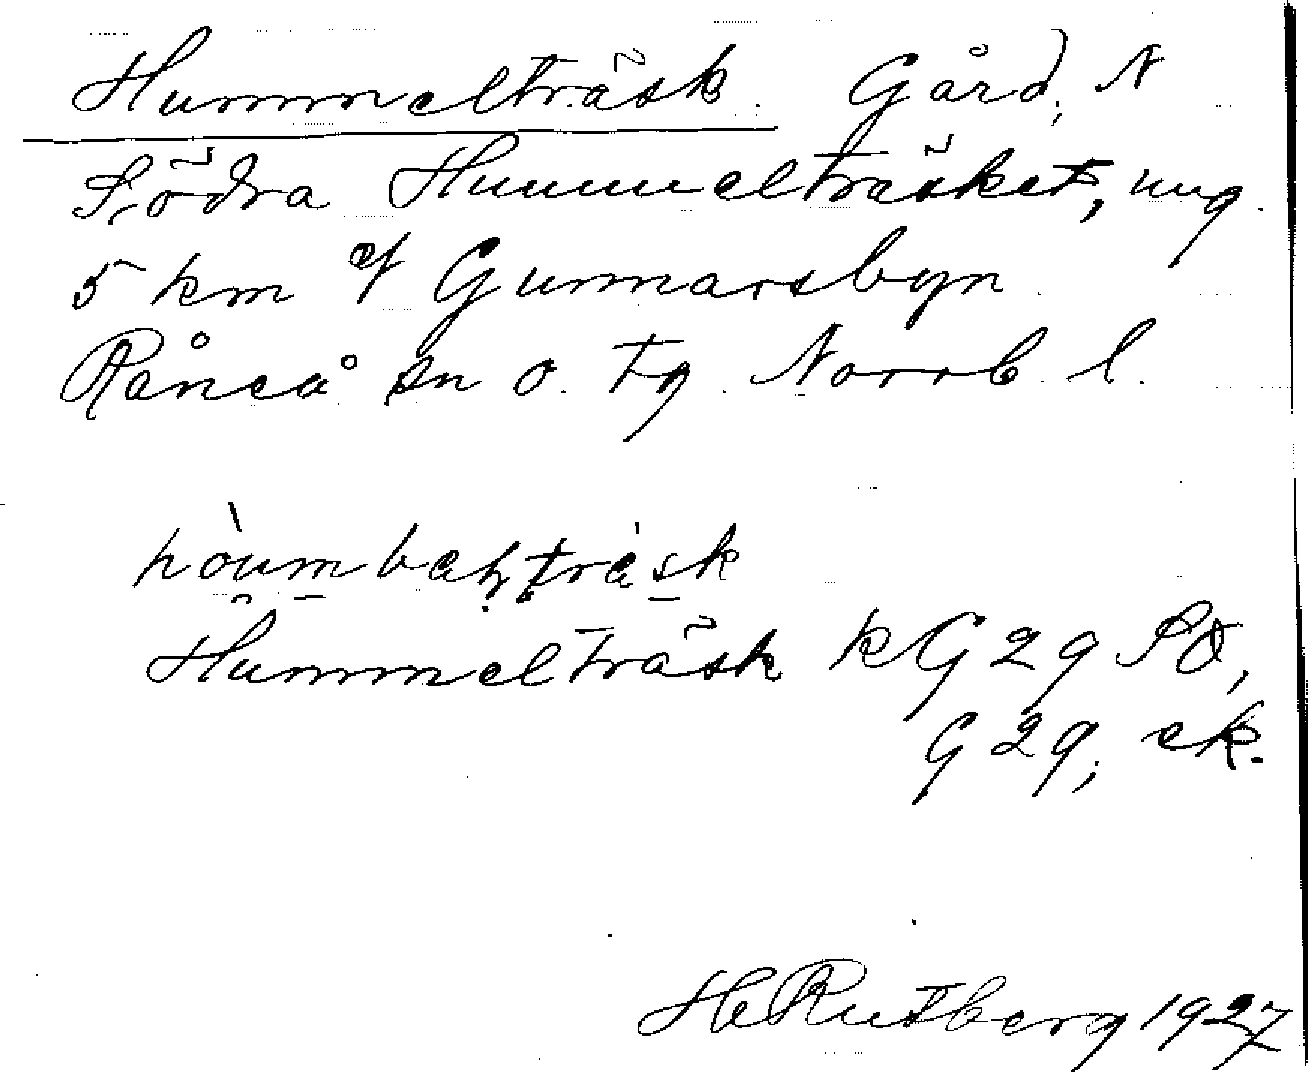 Hummelträsk. Gård, N
Södra Hummelträsket, ung.
5 km Gunnarsbyn.
Råneå sn o. tg. Norrb. l.
Hummelträsk kG 29 SO,
G 29, ek.
H Rutberg 1927